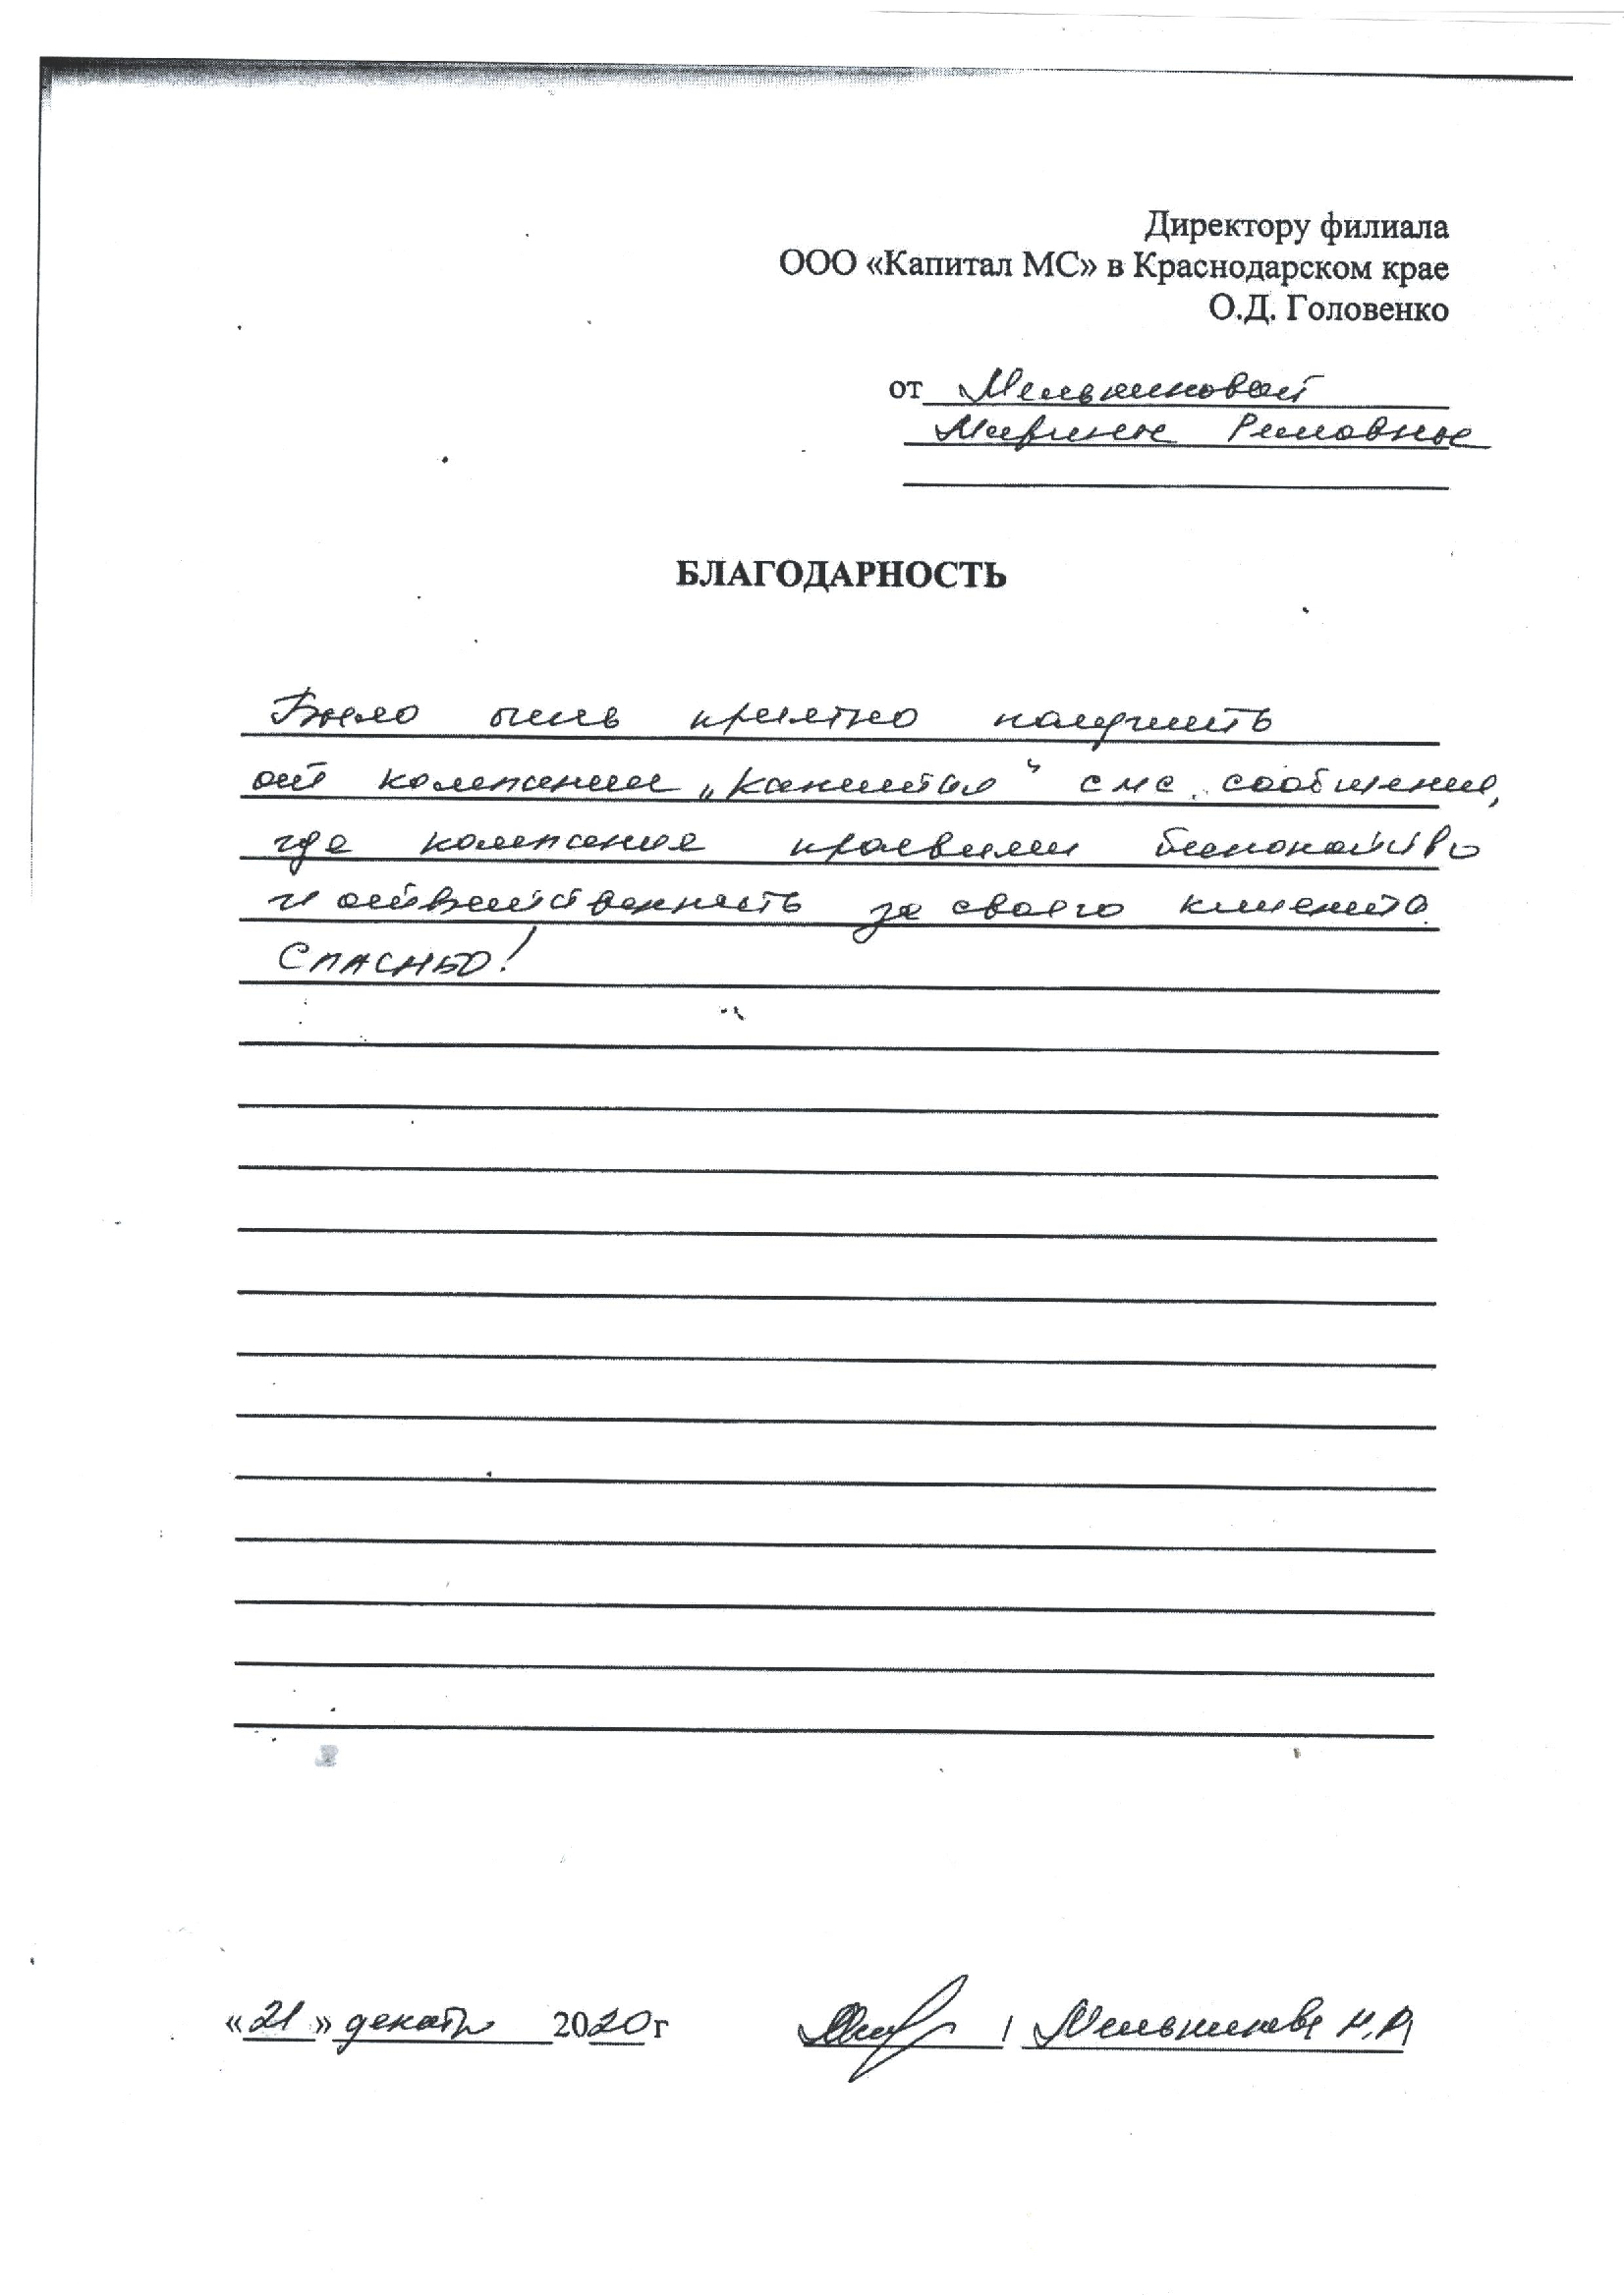 Директору филиала
ООО «Капитал МС» в Краснодарском крае
О.Д. Головенко
от Мельниковой
Марины Римовны
БЛАГОДАРНОСТЬ
Было очень приятно получить
от компании „Капитал" смс. сообщение,
где компания проявили беспокойство
и ответственность за своего клиента.
СПАСИБО!
«21» декабр 2020г / Мельникова М.Р.